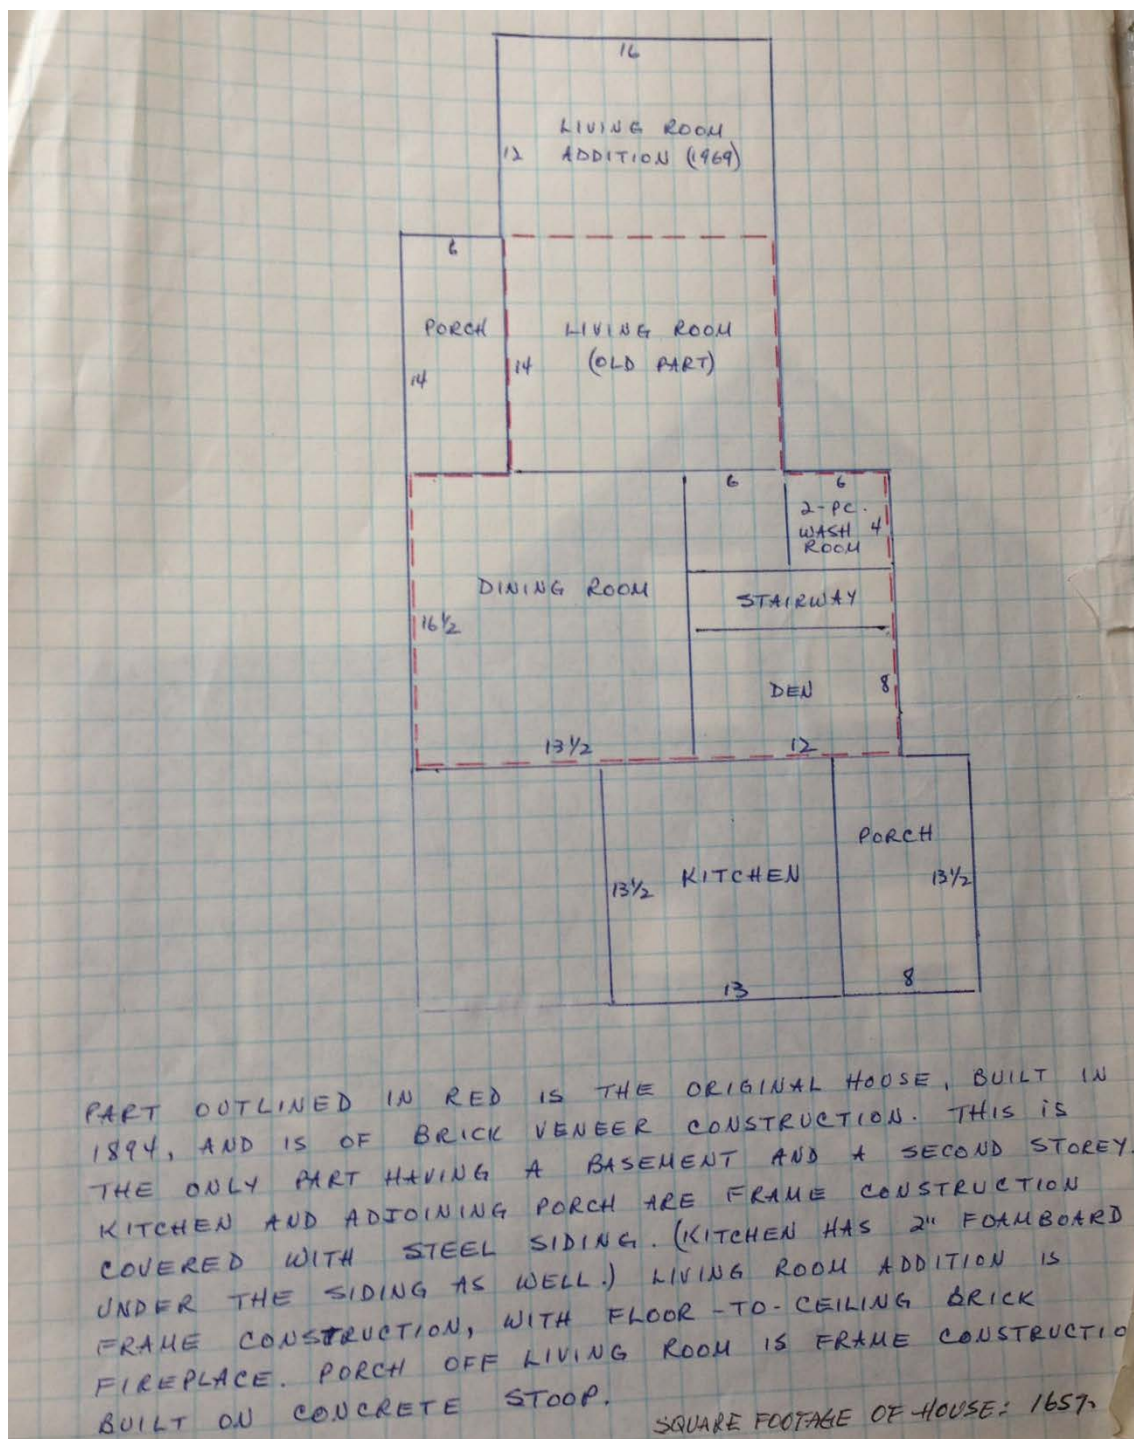 16
LIVING ROOM
12 ADDITION (1969)
6
PORCH
14
LIVING ROOM
(OLD PART)
14
6
6
2-PC.
WASH 4
ROOM
DINING ROOM
STAIRWAY
16 1/2
DEN
8
13 1/2
12
PORCH
KITCHEN
13 1/2
13 1/2
13
8
PART OUTLINED IN RED IS THE ORIGINAL HOUSE, BUILT IN
1894, AND IS OF BRICK VENEER CONSTRUCTION. THIS IS
THE ONLY PART HAVING A BASEMENT AND A SECOND STOREY.
KITCHEN AND ADJOINING PORCH ARE FRAME CONSTRUCTION
COVERED WITH STEEL SIDING. (KITCHEN HAS 2" FOAMBOARD
UNDER THE SIDING AS WELL.) LIVING ROOM ADDITION IS
FRAME CONSTRUCTION, WITH FLOOR-TO-CEILING BRICK
FIREPLACE. PORCH OFF LIVING ROOM IS FRAME CONSTRUCTIO
BUILT ON CONCRETE STOOP.
SQUARE FOOTAGE OF HOUSE: